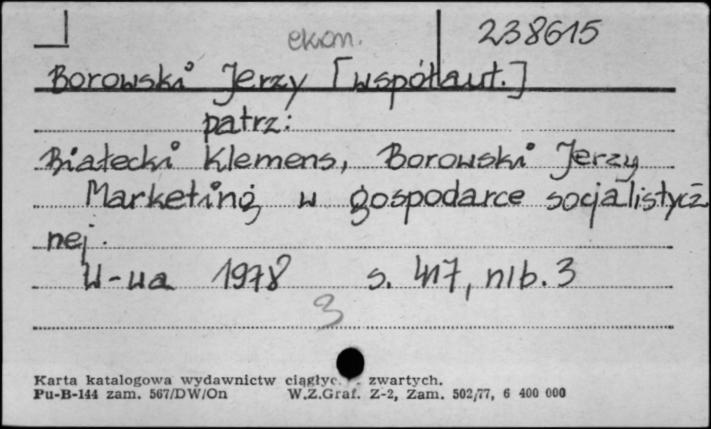 ekon. 238615
Borowski Jerzy [współaut.]
patrz:
Białecki Klemens, Borowski Jerzy
Marketing w gospodarce socjalistycz
nej.
W-wa 1978 s. 417, nlb. 3
3
Karta katalogowa wydawnictw ciągłyc. . zwartych.
Pu-B-144 zam. 567/DW/On W.Z.Graf. Z-2, Zam. 502/77, 6 400 000